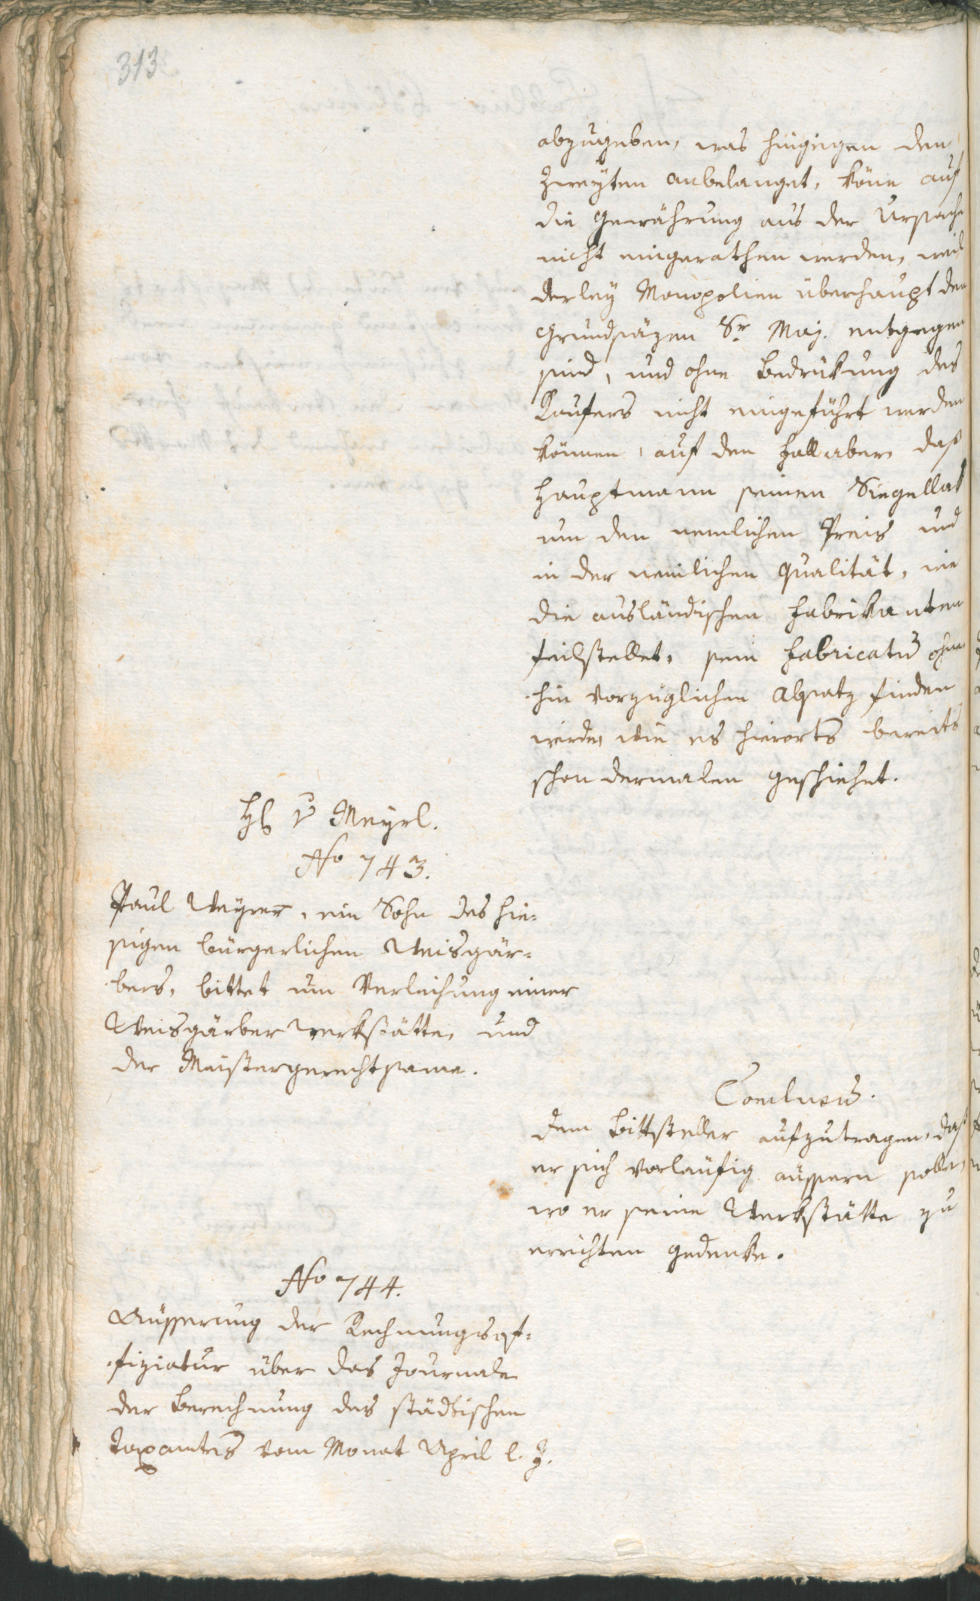 313
abzugeben, was hingegen den
Zweyten anbelanget, köne auf
die Gewährung aus der Ursache
nicht eingerathen werden, weil
derley Monopolien überhaupt den
Grundsäzen Sr Maj. entgegen
sind, und ohne Bedrükung des
Kaufers nicht eingeführt werden
können, auf den Fall aber, daß
Hauptmann seinen Siegellak
um den nemlichen Preis und
in der nemlichen Qualität, wie
die ausländischen Fabrikanten
feilstellet, sein Fabricatum ohne
hin vorzüglichen Absatz finden
werde, wie es hierorts bereits
schon dermalen geschiehet.
H v Meyrl.
No 743.
Paul Weyrer, ein Sohn des hie-
sigen bürgerlichen Weisgär-
bers, bittet um Verleihung einer
Weisgärber Werkstätte, und
der Meistergerechtsame.
Conclusum.
dem Bittsteller aufzutragen, daß
er sich vorläufig äussern solle,
wo er seine Werkstätte zu
errichten gedenke.
No 744.
Aüsserung der Rechnungsof-
fiziatur über das Journale
der Berechnung des städtischen
Taxamtes vom Monat April l. J.